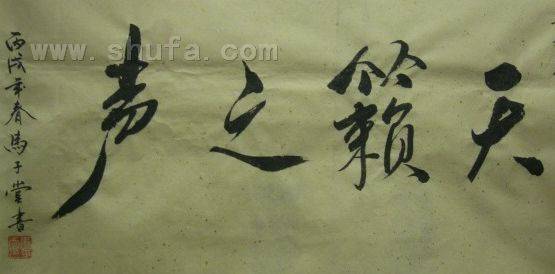 天籁之声
丙戌年春马子堂书
www.shufa.com